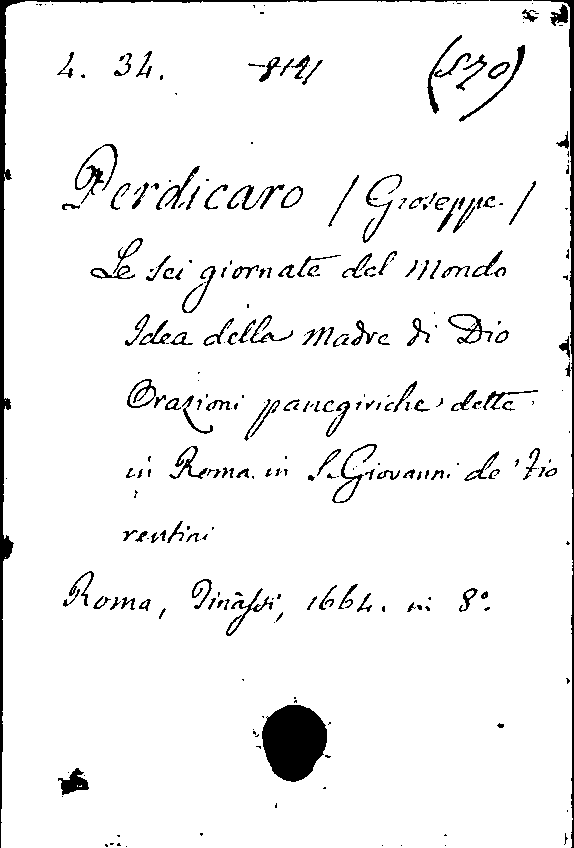 4. 34. 8121 (S70)
Perdicaro / Gioseppe. /
Le sei giornate del Mondo
Idea della Madre di Dio
Orazioni panegiriche dette
in Roma in S. Giovanni de' Fio
rentini
Roma, Tinassi, 1664. in 8°.